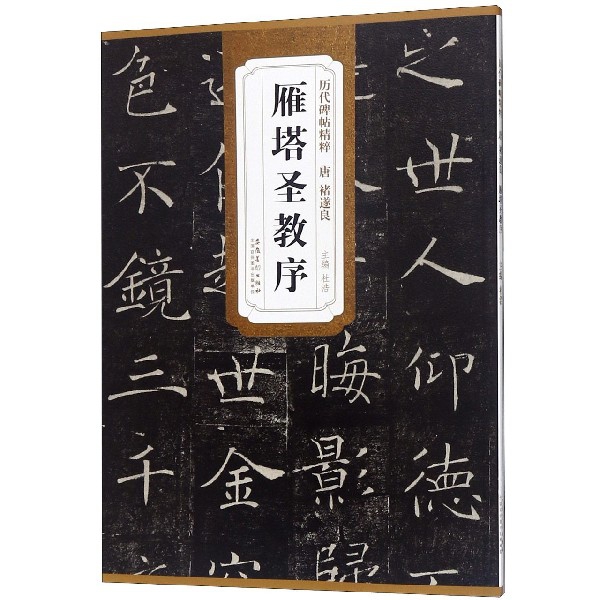 历代碑帖精粹 唐 褚遂良
雁塔圣教序
主编 杜浩
安徽美术出版社
之世人仰德
晦影歸
世金容
色不鏡三千